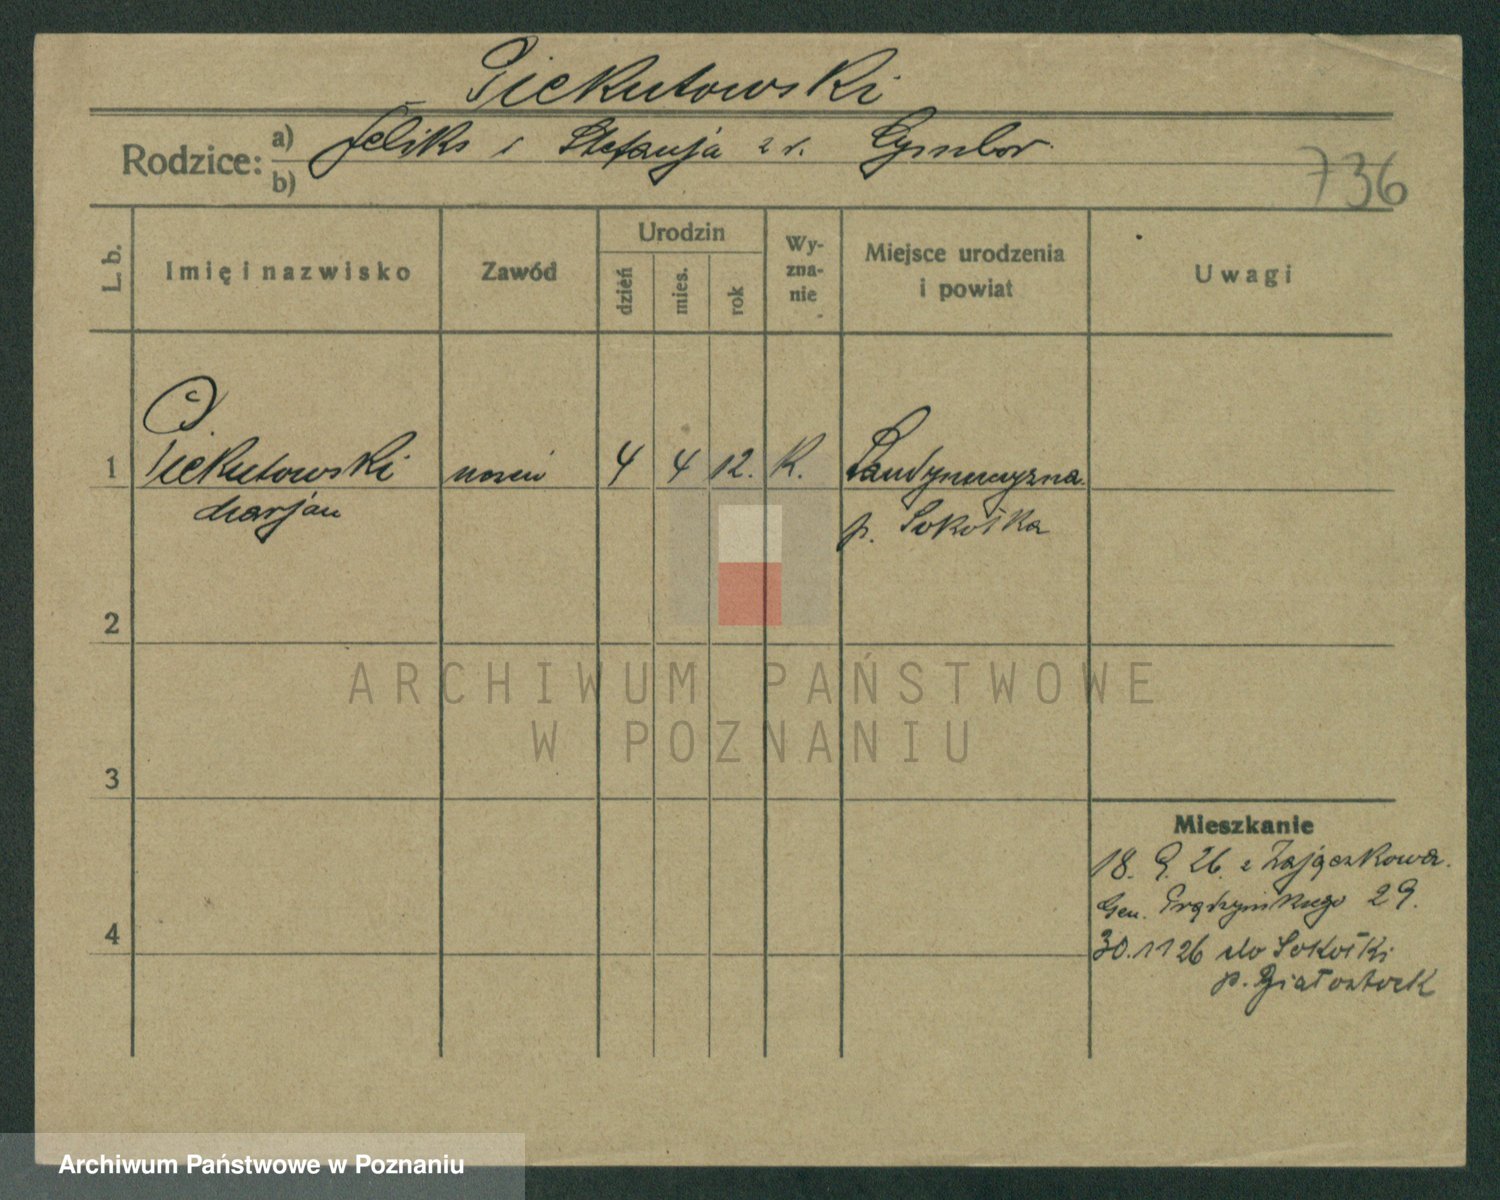 Piekutowski
Rodzice:
a) Feliks i Stefanja z d. Cymbor
b)
736
L. b.
Imię i nazwisko
Zawód
Urodzin
dzień
mies.
rok
Wy-
zna-
nie
Miejsce urodzenia
i powiat
Uwagi
1 Piekutowski uczeń 4 4 12. K.
Marjan
p. Sokółka
2
3
4
Mieszkanie
18. 9. 26. z Zajączkowa.
Gen. Prądzyńskiego 29.
30.11 26 do Sokółki
p. Białostock
ARCHIWUM PAŃSTWOWE
W POZNANIU
Archiwum Państwowe w Poznaniu